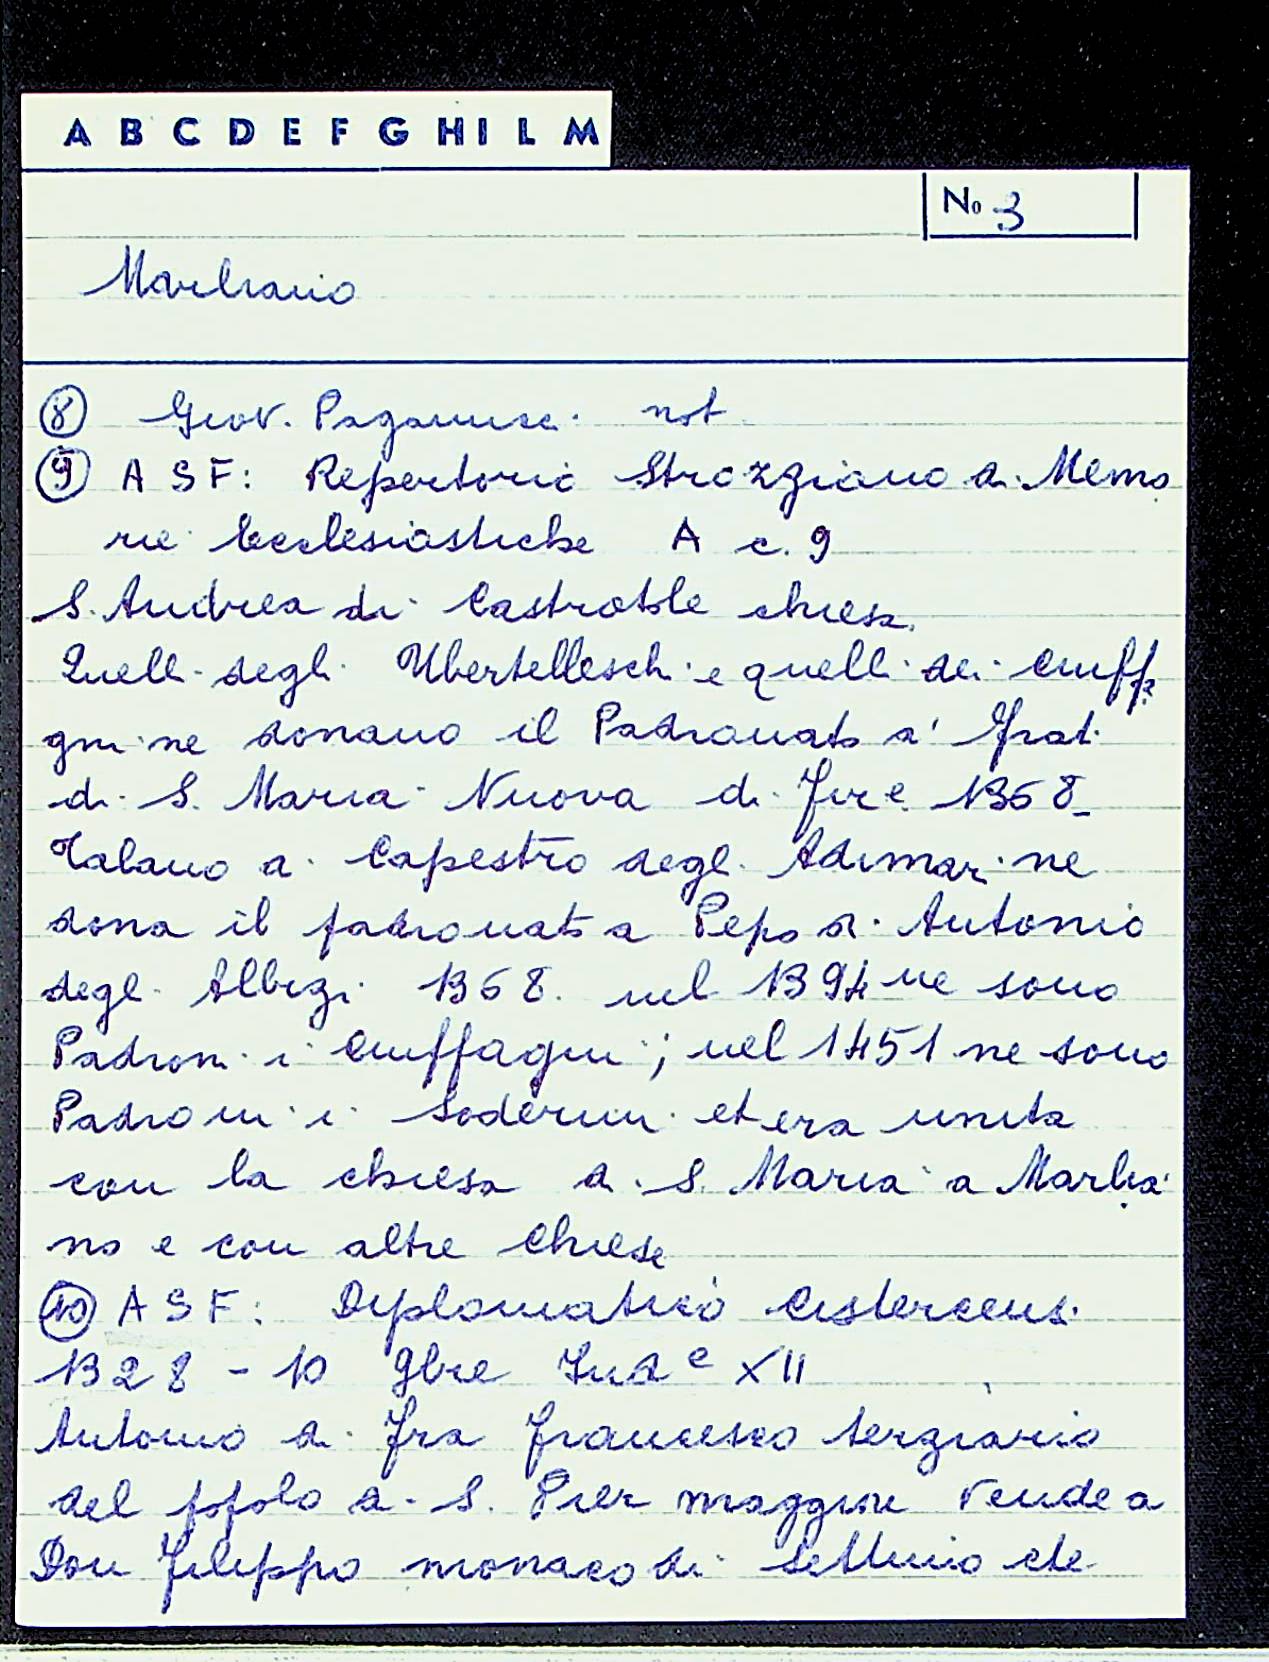 A B C D E F G H I L M
No 3
Marliano
8 Giov. Paganucci not.
9 ASF: Repertorio Strozziano di Memo
rie Ecclesiastiche A c. 9
S. Andrea di Castratole chiesa
Quelli degli Ubertelleschi e quelli dei Ciuffa
gni ne donano il Padronato a' Frati
di S. Maria Nuova di Fire 1368_
Talano di Capestro degli Adimari ne
dona il padronato a Pepo di Antonio
degli Albizi 1368. nel 1394 ne sono
Padroni i Ciuffagni; nel 1451 ne sono
Padroni i Soderini et era unita
con la chiesa di S. Maria a Marlia
no e con altre Chiese
10 ASF: Diplomatico Cistercensi
1328 - 10 9bre Inde XII
Antonio di Fra Francesco terziario
del popolo di S. Pier maggiore vende a
Don Filippo monaco di Settimo che